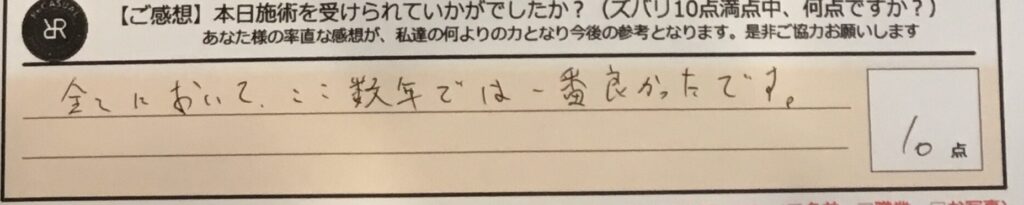 【ご感想】本日施術を受けられていかがでしたか？（ズバリ10点満点中、何点ですか？）
あなた様の率直な感想が、私達の何よりの力となり今後の参考となります。是非ご協力お願いします
全てにおいて、ここ数年では一番良かったです。
10点